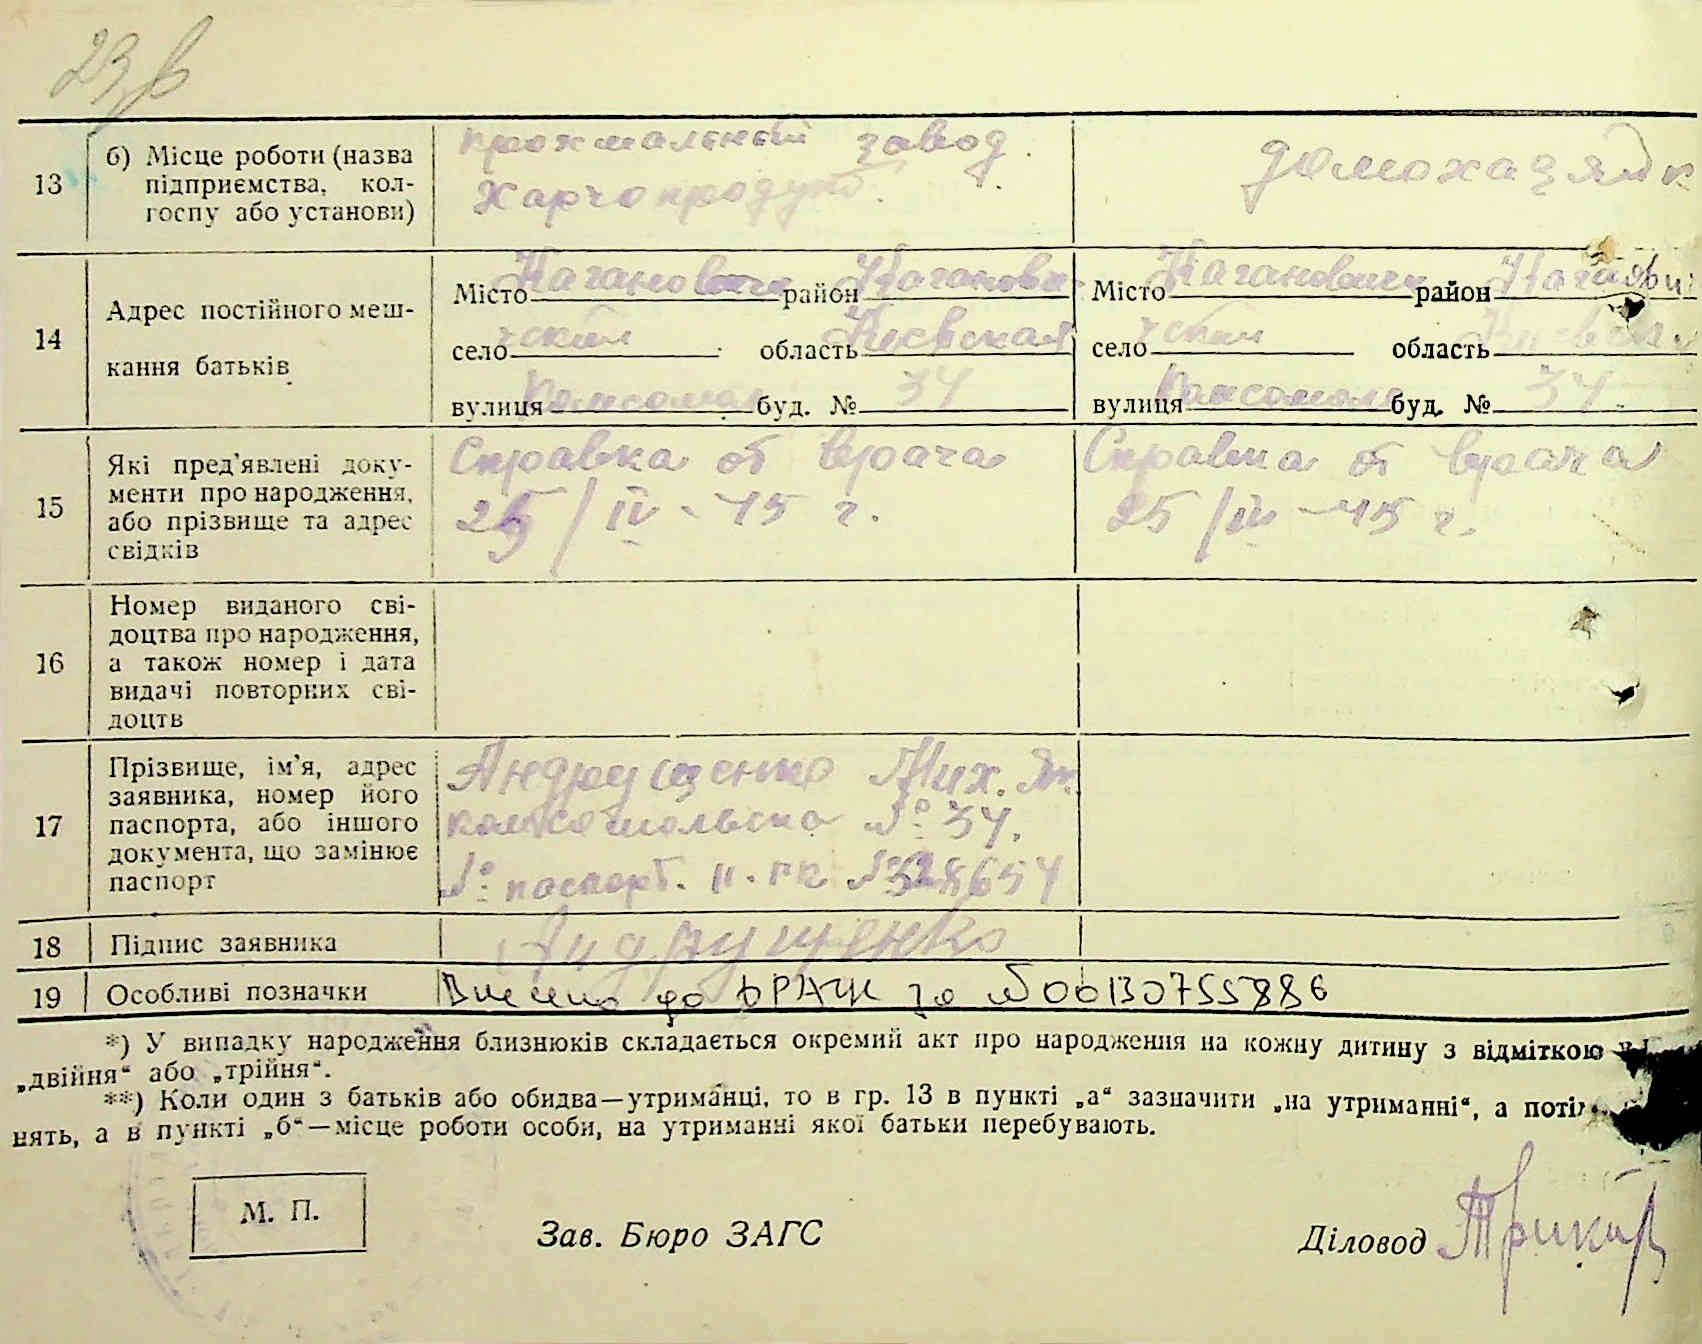 23
13
б) Місце роботи (назва
підприємства, кол-
госпу або установи)
завод
Харчопродукт.
14
Адрес постійного меш-
кання батьків
Місто Каганович район Каганови-
село чский область Киевская
вулиця Комсомол буд. № 34
Місто Кагановичи район
село чский область Киевская
вулиця Комсомол буд. № 34
15
Які пред'явлені доку-
менти про народження,
або прізвище та адрес
свідків
Справка от врача
25/IV - 45 г.
Справка от врача
25/IV - 45 г.
16
Номер виданого сві-
доцтва про народження,
а також номер і дата
видачі повторних сві-
доцтв
17
Прізвище, ім'я, адрес
заявника, номер його
паспорта, або іншого
документа, що замінює
паспорт
Андрущенко Мих. Як.
комсомольска № 34.
№ паспорт.
18
Підпис заявника
Андрущенко
19
Особливі позначки
Внесено до ДРАЦС за №00130755886
*) У випадку народження близнюків складається окремий акт про народження на кожну дитину з відміткою
„двійня“ або „трійня“.
**) Коли один з батьків або обидва—утриманці, то в гр. 13 в пункті „а“ зазначити „на утриманні“, а
нять, а в пункті „б“—місце роботи особи, на утриманні якої батьки перебувають.
М. П.
Зав. Бюро ЗАГС
Діловод